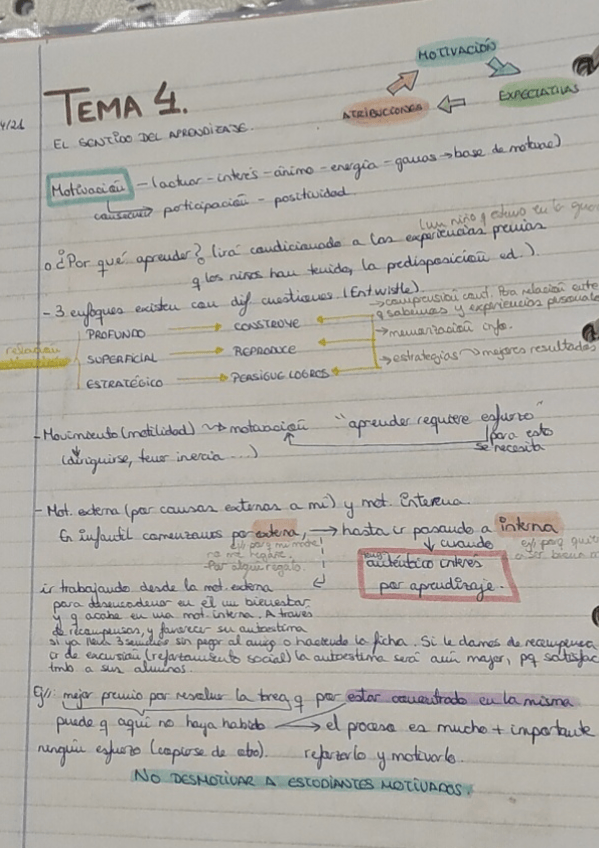 MOTIVACIÓN
TEMA 4.
ATRIBUCIONES
EXPECTATIVAS
4/21
EL SENTIDO DEL APRENDIZAJE.
Motivación - (actuar - interés - ánimo - energía - ganas → base de motivac)
participación - positividad
(un niño q estuvo en la
¿Por qué aprender? (irá condicionado a las experiencias previas
q los niños han tenido, la predisposición ed.).
- 3 enfoques existen con dif cuestiones (Entwistle).
→ comprensión cont. Por relación entre
q sabemos y experiencias personales
PROFUNDO → CONSTRUYE
→ memorización info.
relación
SUPERFICIAL → REPRODUCE
→ estrategias → mejores resultados
ESTRATÉGICO → PERSIGUE LOGROS
- Movimiento (motilidad) → motivación "aprender requiere esfuerzo"
(dirigirse, tener inercia ...)
para esto
se necesita
- Mot. externa (por causas externas a mi) y mot. Interna.
En infantil comenzamos por externa, → hasta ir pasando a interna
cuando
ej/ para q mi madre
no me regañe.
Por algún regalo.
ej/ paq quiero
auténtico interés
por aprendizaje.
ir trabajando desde la mot. externa
para desencadenar en él un bienestar
y q acabe en una mot. interna. A través
de recompensas, y favorecer su autoestima
si ya lleva 3 semanas sin pegar al amigo o haciendo la ficha. Si le damos de recompensa
ir de excursión (reforzamiento social) la autoestima será aún mejor, pq satisfac
tmb a sus alumnos.
Ej/: mejor premio por resolver la tarea q por estar concentrado en la misma
puede q aquí no haya habido → el proceso es mucho + importante
ningún esfuerzo (copiarse de otro). reforzarlo y motivarlo.
NO DESMOTIVAR A ESTUDIANTES MOTIVADOS.